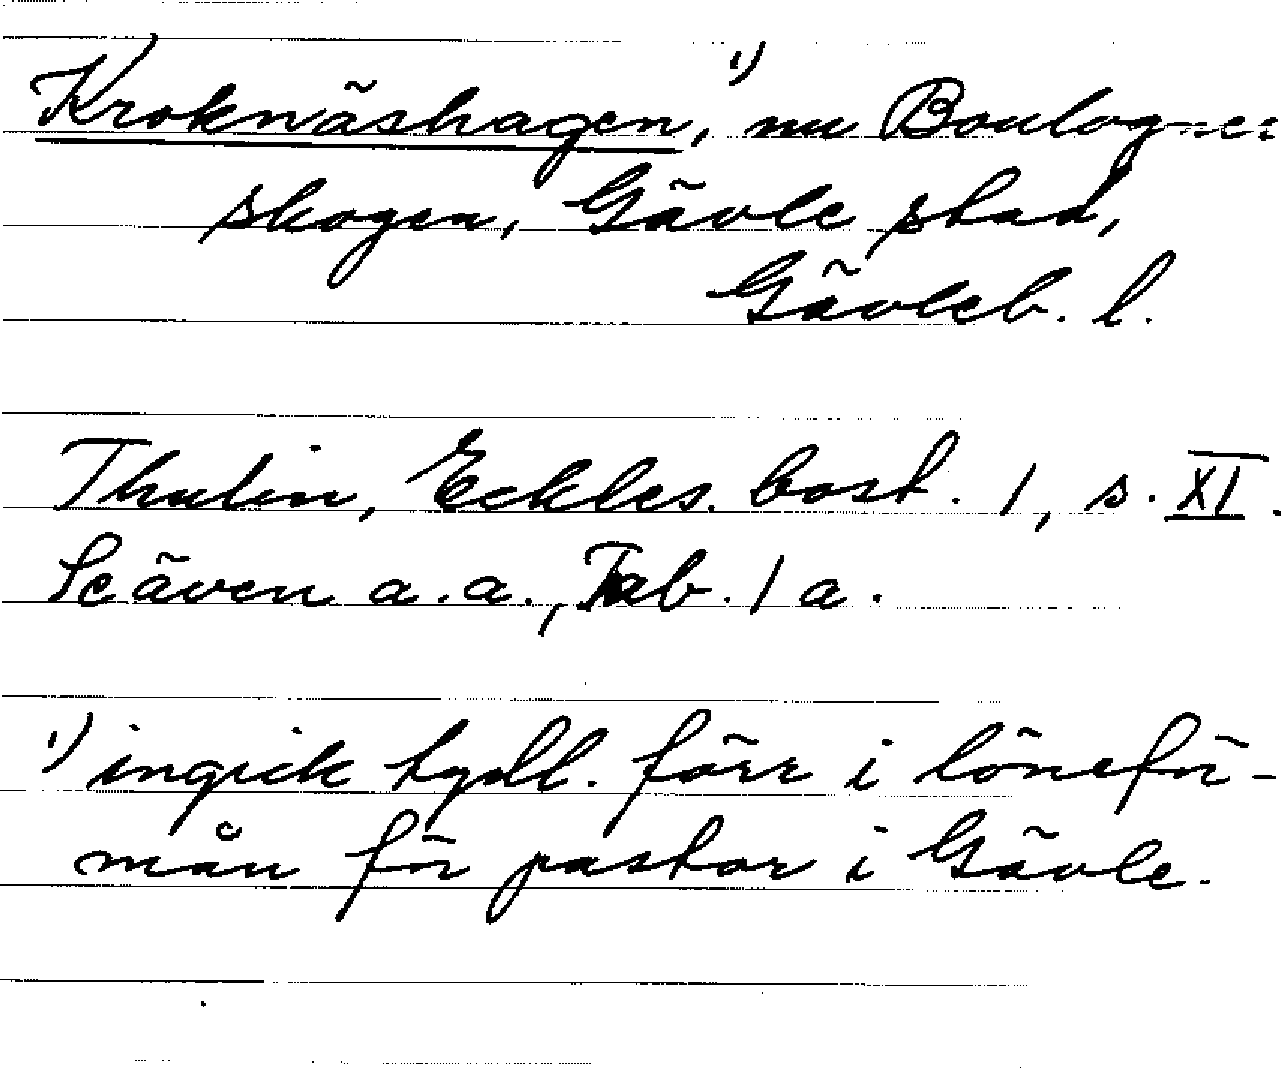 Kroknäshagen,¹⁾ nu Boulogner
skogen, Gävle stad,
Gävleb. l.
Thulin, Eckles. bost. 1, s. XI.
Scäven a.a., Tab. 1 a.
¹⁾ ingick tydl. förr i löneför-
mån för pastor i Gävle.